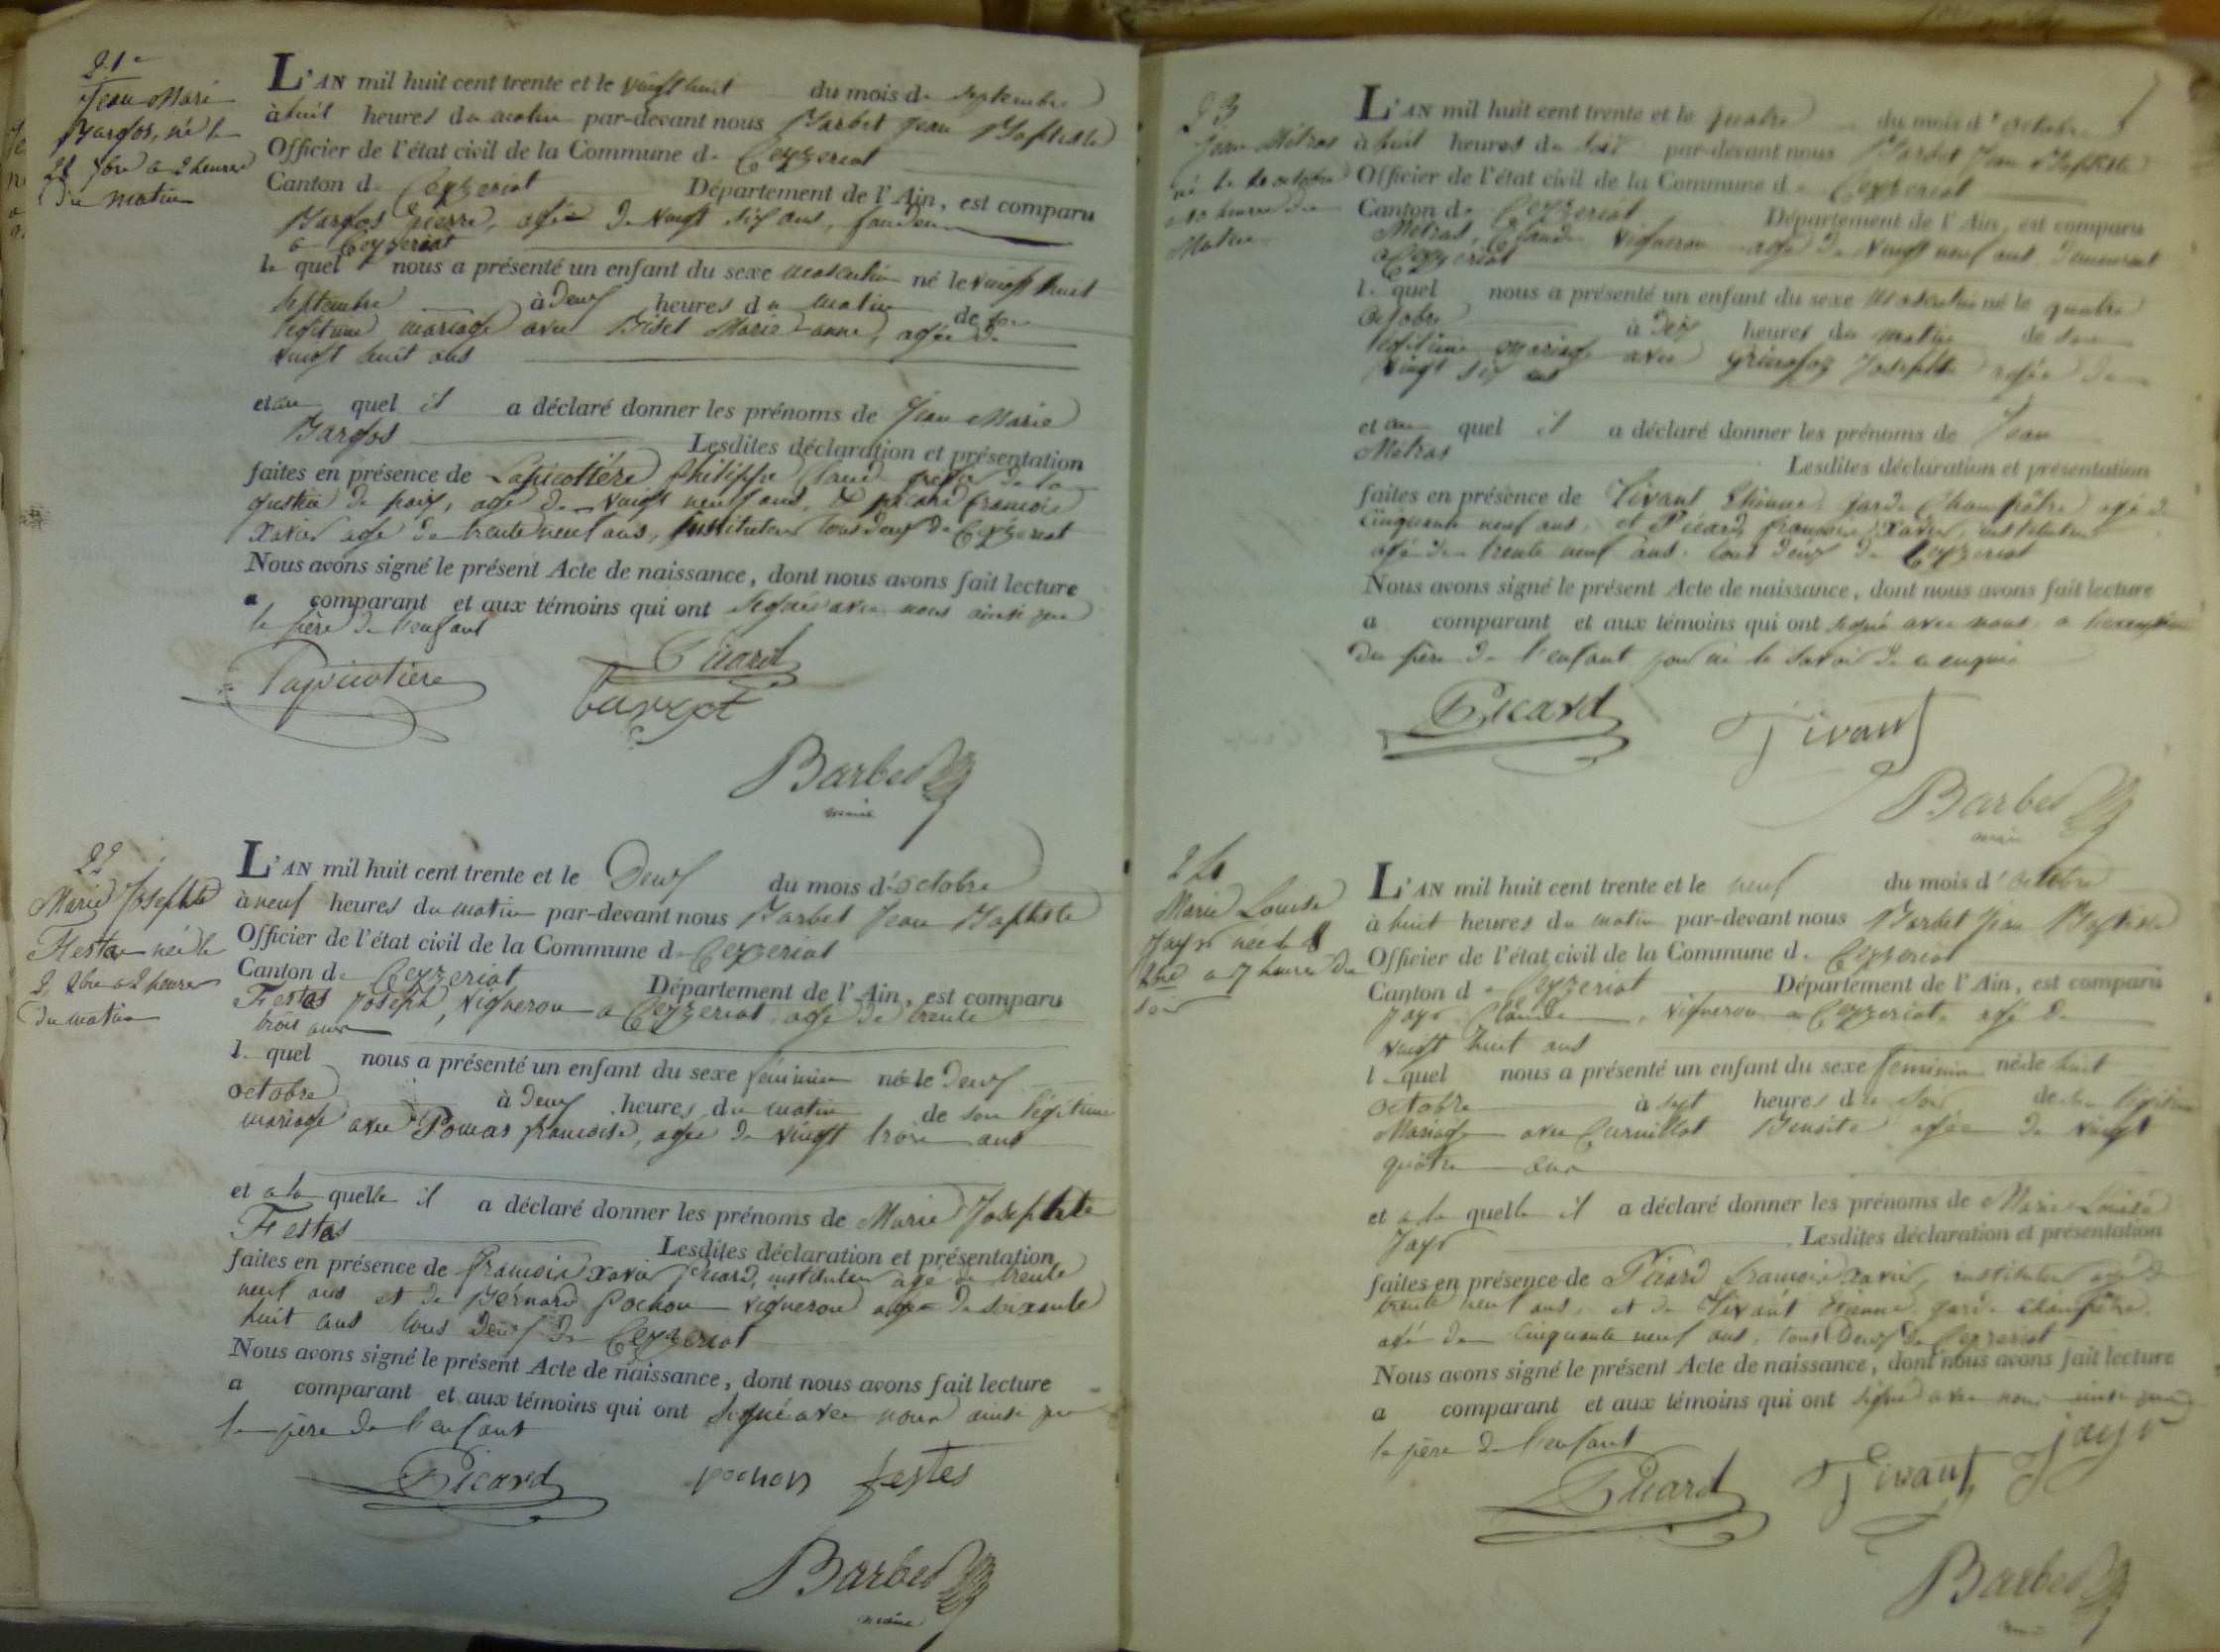 21e
Jean Marie
Bargos, né le
28 7bre a 2 heures
du matin
L'AN mil huit cent trente et le vingt huit du mois de septembre
à huit heures du matin par-devant nous Barbet Jean Baptiste
Officier de l'état civil de la Commune de Ceyzeriat
Canton de Ceyzeriat Département de l'Ain, est comparu
Bargos Pierre, agé de vingt six ans,
a Ceyzeriat
le quel nous a présenté un enfant du sexe masculin né le vingt huit
septembre à deux heures du matin de son
légitime mariage avec Bidet Marie anne, agée de
vingt huit ans
et au quel il a déclaré donner les prénoms de Jean Marie
Bargos Lesdites déclaration et présentation
faites en présence de Lapicotière Philippe Claude greffier de la
justice de paix, agé de vingt neuf ans, & picard françois
Xavier agé de trente neuf ans, instituteur tous deux de Ceyzeriat
Nous avons signé le présent Acte de naissance, dont nous avons fait lecture
a comparant et aux témoins qui ont signés avec nous ainsi que
le père de l'enfant
Lapicotiere Picard
bargot
Barbet
maire
22
Marie Josephte
Festas née le
2 8bre a 2 heures
du matin
L'AN mil huit cent trente et le Deux du mois d'octobre
à neuf heures du matin par-devant nous Barbet Jean Baptiste
Officier de l'état civil de la Commune de Ceyzeriat
Canton de Ceyzeriat Département de l'Ain, est comparu
Festas Joseph, vigneron a Ceyzeriat agé de trente
trois ans
le quel nous a présenté un enfant du sexe féminin née le deux
octobre à deux heures du matin de son légitime
mariage avec Pomas françoise, agée de vingt trois ans
et a la quelle il a déclaré donner les prénoms de Marie Josephte
Festas Lesdites déclaration et présentation
faites en présence de françois Xavier Picard, instituteur agé de trente
neuf ans et de Bernard Pochon vigneron agé de soixante
huit ans tous deux de Ceyzeriat
Nous avons signé le présent Acte de naissance, dont nous avons fait lecture
a comparant et aux témoins qui ont signé avec nous ainsi que
le père de l'enfant
Picard pochon festes
Barbet
maire
23
Jean Métras
né le 4 octobre
a 10 heures du
Matin
L'AN mil huit cent trente et le quatre du mois d'octobre
à huit heures du soir par-devant nous Barbet Jean Baptiste
Officier de l'état civil de la Commune de Ceyzeriat
Canton de Ceyzeriat Département de l'Ain, est comparu
Métras, Claude vigneron agé de vingt neuf ans demeurant
a Ceyzeriat
le quel nous a présenté un enfant du sexe masculin né le quatre
octobre à dix heures du matin de son
légitime mariage avec Josephte agée de
vingt six ans
et au quel il a déclaré donner les prénoms de Jean
Métras Lesdites déclaration et présentation
faites en présence de Tivant Etienne garde Champêtre agé de
cinquante neuf ans, et Picard françois Xavier, instituteur
agé de trente neuf ans. tous deux de Ceyzeriat
Nous avons signé le présent Acte de naissance, dont nous avons fait lecture
a comparant et aux témoins qui ont signé avec nous a l'exception
du père de l'enfant pour ne le savoir de ce enquis
Picard Tivant
Barbet
maire
24
Marie Louise
Jayr née le 8
8bre a 7 heures du
soir
L'AN mil huit cent trente et le neuf du mois d'octobre
à huit heures du matin par-devant nous Barbet Jean Baptiste
Officier de l'état civil de la Commune de Ceyzeriat
Canton de Ceyzeriat Département de l'Ain, est comparu
Jayr Claude, vigneron a Ceyzeriat agé de
vingt huit ans
le quel nous a présenté un enfant du sexe féminin née le huit
octobre à sept heures du soir de son légitime
Mariage avec Curnillot Benoite agée de vingt
quatre ans
et a la quelle il a déclaré donner les prénoms de Marie Louise
Jayr Lesdites déclaration et présentation
faites en présence de Picard françois Xavier, instituteur agé de
trente neuf ans, et de Tivant Etienne garde champêtre
agé de cinquante neuf ans, tous deux de Ceyzeriat
Nous avons signé le présent Acte de naissance, dont nous avons fait lecture
a comparant et aux témoins qui ont signé avec nous ainsi que
le père de l'enfant jayr
Picard Tivant
Barbet